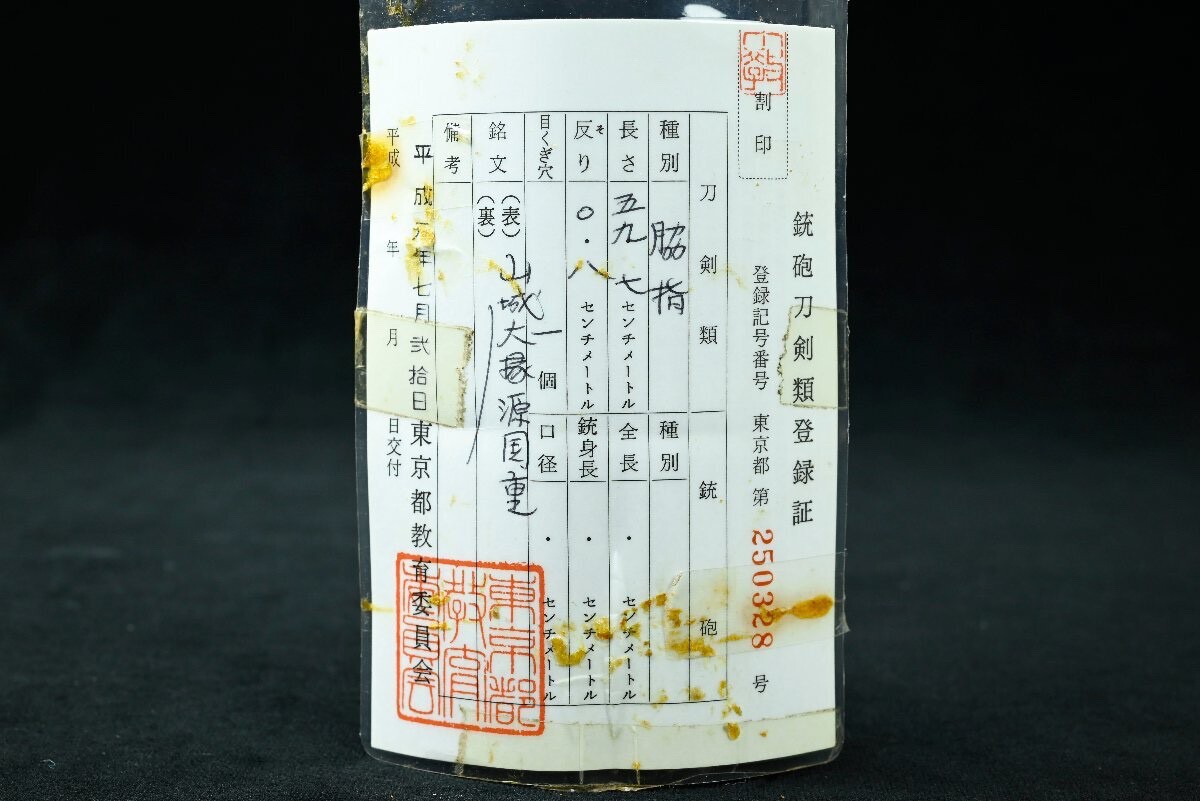 割印
銃砲刀剣類登録証
登録記号番号 東京都 第 250328 号
刀剣類
銃砲
種別 脇指
種別
長さ 五九.七 センチメートル
全長 ・ センチメートル
反り 〇.八 センチメートル
そ
銃身長 ・ センチメートル
目くぎ穴 一個
口径 ・ センチメートル
銘文 (表) 山城大掾源国重
(裏)
備考
平成 年七月弐拾日 東京都教育委員会
平成 年 月 日交付
東京都
教育
委員会